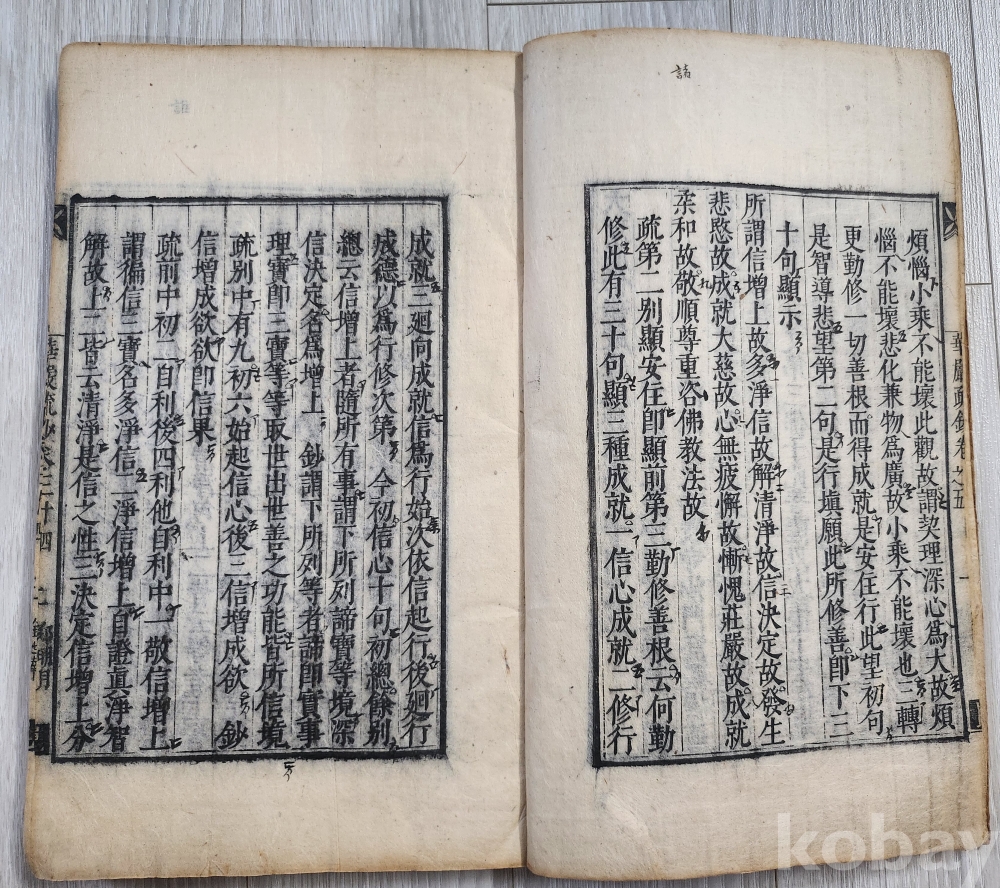 諳
煩惱小乘不能壞此觀故謂契理深心爲大故煩
惱不能壞悲化兼物爲廣故小乘不能壞也三轉
更勤修一切善根而得成就是安住行此望初句
是智導悲望第二句是行塡願此所修善即下三
十句顯示
所謂信增上故多淨信故解清淨故信決定故發生
悲愍故成就大慈故心無疲懈故慚愧莊嚴故成就
柔和故敬順尊重咨佛教法故
疏第二別顯安住即顯前第三勤修善根云何勤
修此有三十句顯三種成就一信心成就二修行
成就三廻向成就信爲行始次依信起行後廻行
成德以爲行修次第今初信心十句初總餘別
總云信增上者隨所有事謂下所列諦寶等境深
信決定名爲增上 鈔謂下所列等者諦即實事
理寶即三寶等等取世出世善之功能皆所信境
疏別中有九初六始起信心後三信增成欲 鈔
信增成欲欲即信果
疏前中初二自利後四利他自利中一敬信增上
謂徧信三寶名多淨信二淨信增上自證眞淨智
解故上二皆云清淨是信之性三決定信增上分
華嚴疏鈔卷之五
一
華嚴疏鈔卷三十四